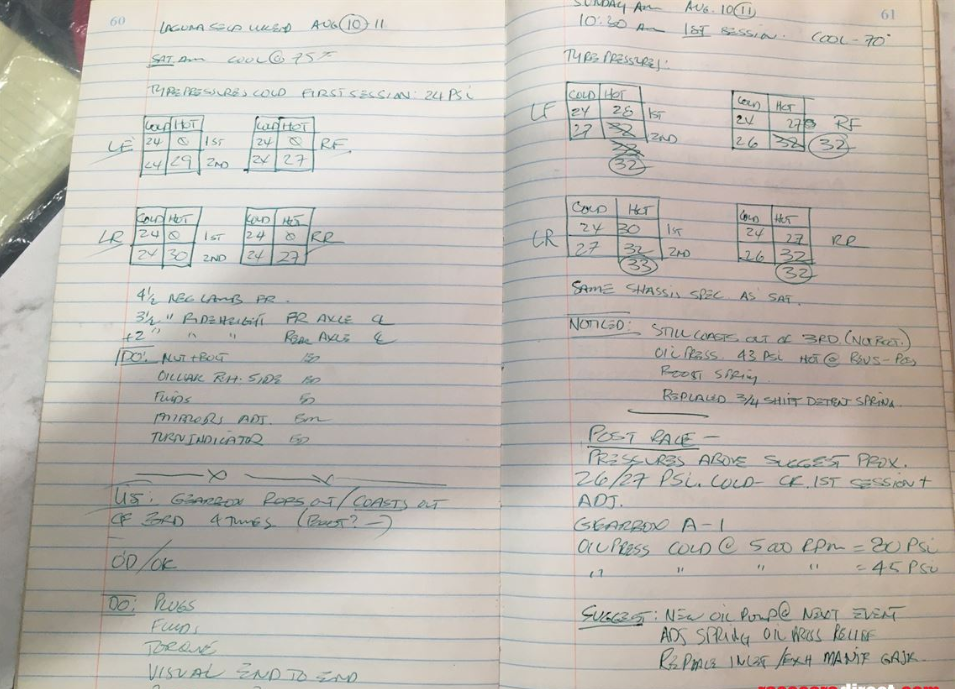 60
LAGUNA SECA WKEND AUG 10 11
SAT. AM COOL @ 75°
TYRE PRESSURES COLD FIRST SESSION: 24 PSI
COLD HOT COLD HOT
LF 24 0 1ST 24 0 RF
24 29 2ND 24 27
COLD HOT COLD HOT
LR 24 0 1ST 24 0 RR
24 30 2ND 24 27
4 1/2 NEG CAMB FR.
3 1/2 " RIDE HEIGHT FR AXLE CL
+2" " " REAR AXLE CL
DO: NUT + BOLT
OIL LEAK R.H. SIDE
FLUIDS
MIRRORS ADJ.
TURN INDICATOR
X
GEARBOX POPS OUT/COASTS OUT
OF 3RD 4 TIMES (BOOT? -)
OD/OK
DO: PLUGS
FLUIDS
TORQUE
VISUAL END TO END
61
SUNDAY AM AUG. 10 11
10:20 AM 1ST SESSION. COOL - 70°
TYRE PRESSURES:
COLD HOT COLD HOT
LF 24 28 1ST 24 27 RF
27 32 2ND 26 32 32
33
32
COLD HOT COLD HOT
LR 24 30 1ST 24 27 RR
27 32 2ND 26 32
33 32
SAME SHASSIS SPEC. AS SAT.
NOTICED: STILL COASTS OUT OF 3RD (NOT BOOT.)
OIL PRESS. 43 PSI HOT @
BOOST SPRING
REPLACED 3/4 SHIFT DETENT SPRING.
POST RACE -
PRESSURES ABOVE SUGGEST PROX.
26/27 PSI. COLD - CK. 1ST SESSION +
ADJ.
GEARBOX A-1
OIL PRESS COLD @ 5000 RPM = 80 PSI
" " " " = 45 PSI
SUGGEST: NEW OIL PUMP @ NEXT EVENT
ADJ SPRING OIL PRESS RELIEF
REPLACE INLET/EXH MANIF GASK.
racecarsdirect.com